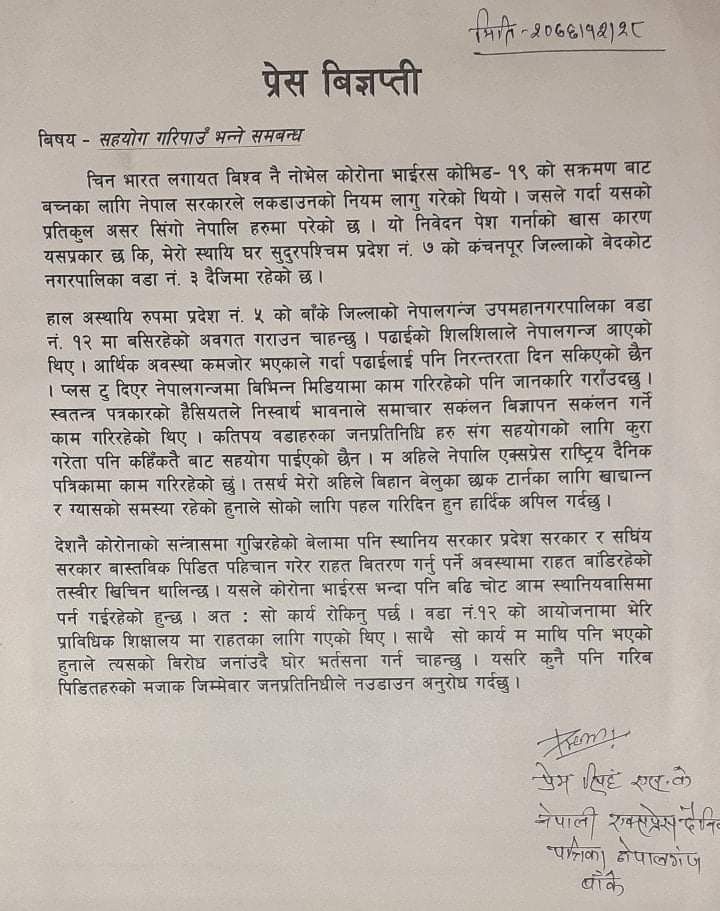 मिति-२०७६।१२।२८
प्रेस बिज्ञप्ती
बिषय - सहयोग गरिपाउँ भन्ने समबन्ध
चिन भारत लगायत बिश्व नै नोभेल कोरोना भाईरस कोभिड- १९ को सक्रमण बाट
बच्नका लागि नेपाल सरकारले लकडाउनको नियम लागु गरेको थियो । जसले गर्दा यसको
प्रतिकुल असर सिंगो नेपालि हरुमा परेको छ । यो निवेदन पेश गर्नाको खास कारण
यसप्रकार छ कि, मेरो स्थायि घर सुदुरपश्चिम प्रदेश नं. ७ को कंचनपूर जिल्लाको बेदकोट
नगरपालिका वडा नं. ३ दैजिमा रहेको छ ।
हाल अस्थायि रुपमा प्रदेश नं. ५ को बाँके जिल्लाको नेपालगन्ज उपमहानगरपालिका वडा
नं. १२ मा बसिरहेको अवगत गराउन चाहन्छु । पढाईको शिलशिलाले नेपालगन्ज आएको
थिए । आर्थिक अवस्था कमजोर भएकाले गर्दा पढाईलाई पनि निरन्तरता दिन सकिएको छैन
। प्लस टु दिएर नेपालगन्जमा बिभिन्न मिडियामा काम गरिरहेको पनि जानकारि गराँउदछु ।
स्वतन्त्र पत्रकारको हैसियतले निस्वार्थ भावनाले समाचार सकंलन बिज्ञापन सकंलन गर्ने
काम गरिरहेको थिए । कतिपय वडाहरुका जनप्रतिनिधि हरु संग सहयोगको लागि कुरा
गरेता पनि कहिँकतै बाट सहयोग पाईएको छैन । म अहिले नेपालि एक्सप्रेस राष्ट्रिय दैनिक
पत्रिकामा काम गरिरहेको छुं । तसर्थ मेरो अहिले बिहान बेलुका छाक टार्नका लागि खाद्यान्न
र ग्यासको समस्या रहेको हुनाले सोको लागि पहल गरिदिन हुन हार्दिक अपिल गर्दछु ।
देशनै कोरोनाको सन्त्रासमा गुज्रिरहेको बेलामा पनि स्थानिय सरकार प्रदेश सरकार र सघिंय
सरकार बास्तविक पिडित पहिचान गरेर राहत बितरण गर्नु पर्ने अवस्थामा राहत बांडिरहेको
तस्वीर खिचिन थालिन्छ । यसले कोरोना भाईरस भन्दा पनि बढि चोट आम स्थानियवासिमा
पर्न गईरहेको हुन्छ । अत : सो कार्य रोकिनु पर्छ । वडा नं.१२ को आयोजनामा भेरि
प्राविधिक शिक्षालय मा राहतका लागि गएको थिए । साथै सो कार्य म माथि पनि भएको
हुनाले त्यसको बिरोध जनांउदै घोर भर्तसना गर्न चाहन्छु । यसरि कुनै पनि गरिब
पिडितहरुको मजाक जिम्मेवार जनप्रतिनिधीले नउडाउन अनुरोध गर्दछु ।
प्रेम सिहं एल.के
नेपाली एक्सप्रेस दैनि
पत्रिका नेपालगंज
बाँके